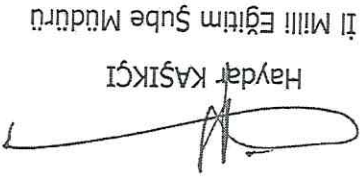 Haydar KAŞIKÇI
İl Milli Eğitim Şube Müdürü